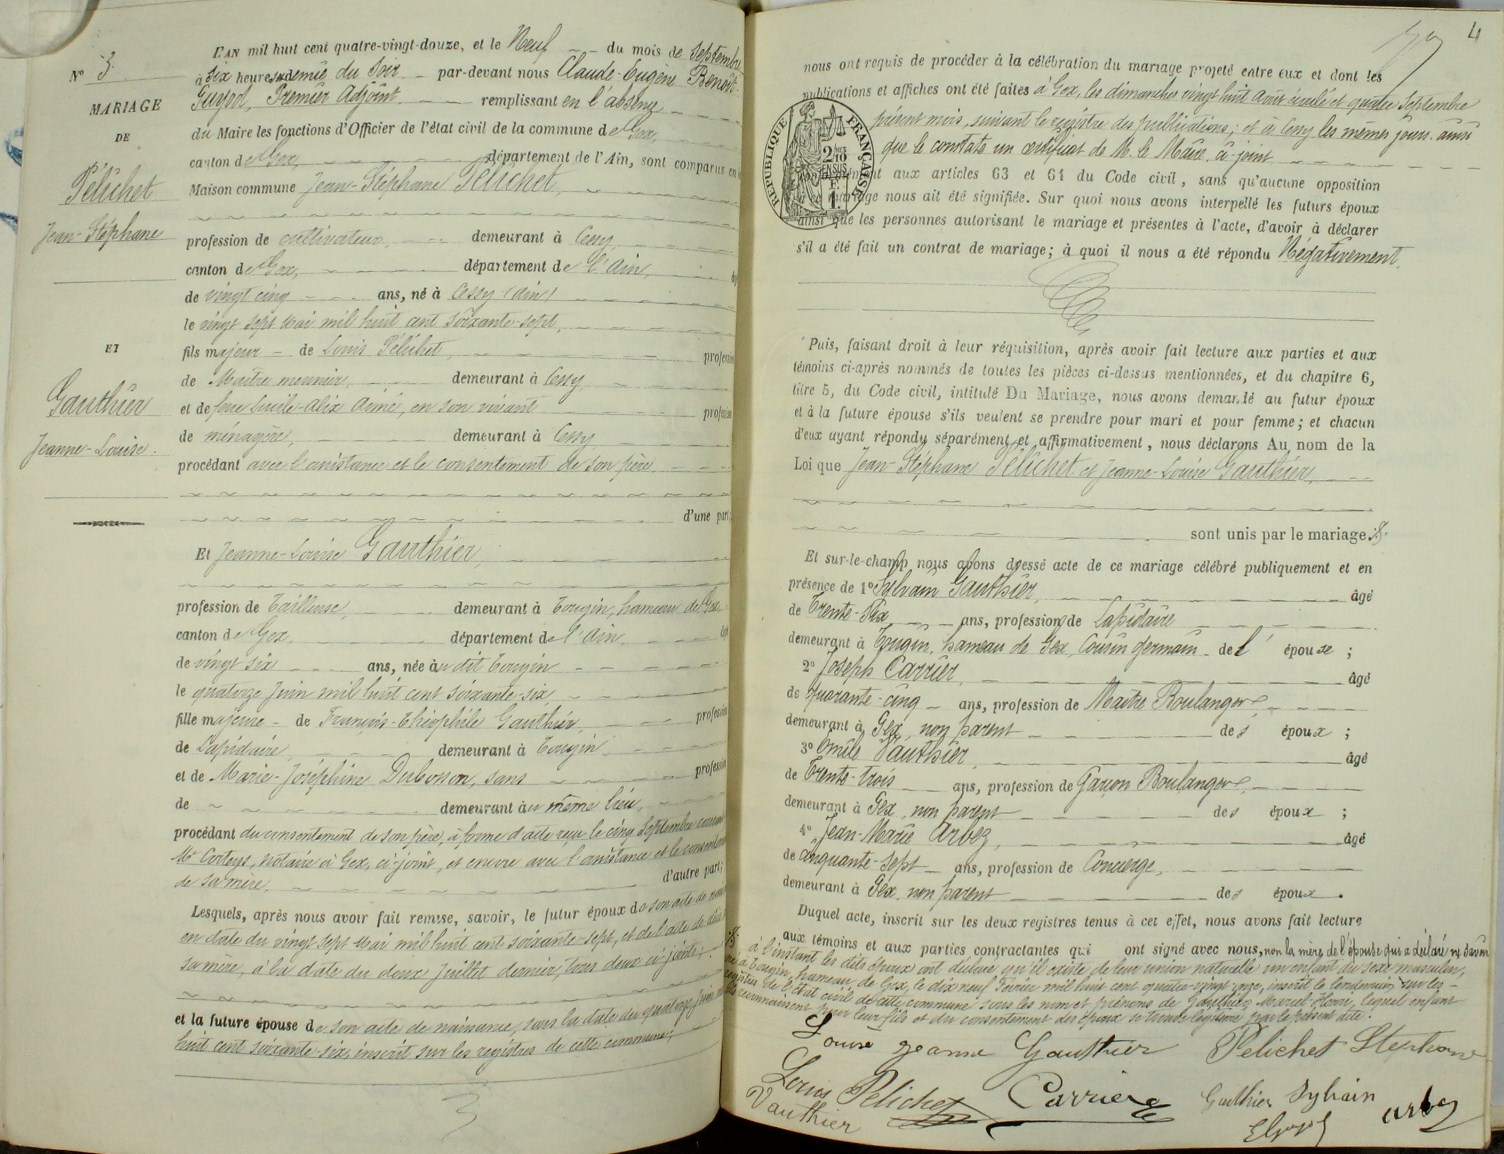 N° 3
MARIAGE
DE
Pélichet
Jean-Stéphane
ET
Gauthier
Jeanne-Louise.
L'AN mil huit cent quatre-vingt-douze, et le Neuf du mois de Septembre
à Six heures et demie du Soir par-devant nous Claude-Eugène Benoit
Guyot, Premier Adjoint remplissant en l'absence
du Maire les fonctions d'Officier de l'état civil de la commune de Gex,
canton de Gex, département de l'Ain, sont comparus en
Maison commune Jean-Stéphane Pélichet,
profession de cultivateur, demeurant à Cessy,
canton de Gex, département de l'Ain, âgé
de vingt cinq ans, né à Cessy (Ain)
le vingt sept Mai mil huit cent soixante-sept,
fils majeur de Louis Pélichet, profession
de Maître meunier, demeurant à Cessy
et de feue Lucile-Alix Aimé, en son vivant profession
de ménagère, demeurant à Cessy
procédant avec l'assistance et le consentement de son père
d'une part;
Et Jeanne-Louise Gauthier,
profession de Tailleuse, demeurant à Tougin, hameau de Gex
canton de Gex département de l'Ain âgée
de vingt six ans, née au dit Tougin
le quatorze Juin mil huit cent soixante-six,
fille majeure de François-Théophile Gauthier, profession
de Lapidaire, demeurant à Tougin
et de Marie-Joséphine Dubosson, sans profession
de demeurant au même lieu,
procédant du consentement de son père, à forme d'acte reçu le cinq Septembre courant
Me notaire à Gex, ci-joint, et encore avec l'assistance et le consentement
de sa mère, d'autre part;
Lesquels, après nous avoir fait remise, savoir, le futur époux de son acte de
en date du vingt sept Mai mil huit cent soixante-sept, et de l'acte de décès
sa mère, à la date du deux Juillet dernier, tous deux ci-joints;
et la future épouse de son acte de naissance, sous la date du quatorze Juin
huit cent soixante-six, inscrit sur les registres de cette commune;
4
nous ont requis de procéder à la célébration du mariage projeté entre eux et dont les
publications et affiches ont été faites à Gex, les dimanches vingt huit Août écoulé et quatre Septembre
présent mois, suivant le registre des publications; et à Cessy les mêmes jours. ainsi
que le constate un certificat de M. le Maire, ci joint
RÉPUBLIQUE FRANÇAISE
2/10 EN SUS
F 1
aux articles 63 et 64 du Code civil, sans qu'aucune opposition
mariage nous ait été signifiée. Sur quoi nous avons interpellé les futurs époux
ainsi que les personnes autorisant le mariage et présentes à l'acte, d'avoir à déclarer
s'il a été fait un contrat de mariage; à quoi il nous a été répondu Négativement.
Puis, faisant droit à leur réquisition, après avoir fait lecture aux parties et aux
témoins ci-après nommés de toutes les pièces ci-dessus mentionnées, et du chapitre 6,
titre 5, du Code civil, intitulé Du Mariage, nous avons demandé au futur époux
et à la future épouse s'ils veulent se prendre pour mari et pour femme; et chacun
d'eux ayant répondu séparément et affirmativement, nous déclarons Au nom de la
Loi que Jean-Stéphane Pélichet et Jeanne-Louise Gauthier,
sont unis par le mariage.
Et sur-le-champ nous avons dressé acte de ce mariage célébré publiquement et en
présence de 1° Sylvain Gauthier, âgé
de Trente-Six ans, profession de Lapidaire
demeurant à Tougin, hameau de Gex, Cousin germain de l'épouse;
2° Joseph Carrier, âgé
de quarante-cinq ans, profession de Maître Boulanger
demeurant à Gex, non parent des époux;
3° Emile Vauthier, âgé
de Trente-trois ans, profession de Garçon Boulanger,
demeurant à Gex, non parent des époux;
4° Jean-Marie Arbez, âgé
de cinquante-sept ans, profession de Concierge,
demeurant à Gex, non parent des époux.
Duquel acte, inscrit sur les deux registres tenus à cet effet, nous avons fait lecture
aux témoins et aux parties contractantes qui ont signé avec nous, non la mère de l'épouse qui a déclaré ne savoir
à l'instant les dits époux ont déclaré qu'il existe de leur union naturelle un enfant du sexe masculin,
né à Tougin, hameau de Gex, le dix neuf Février mil huit cent quatre-vingt onze, inscrit le lendemain sur les
registres de l'état civil de cette commune sous les nom et prénoms de Gauthier Marcel-Henri, lequel enfant
ils reconnaissent pour leur fils et du consentement des époux se trouve légitimé par le présent acte.
Louise Jeanne Gauthier Pélichet Stephane
Louis Pelichet Carrier Gauthier Sylvain
Vauthier EGuyot Arbez